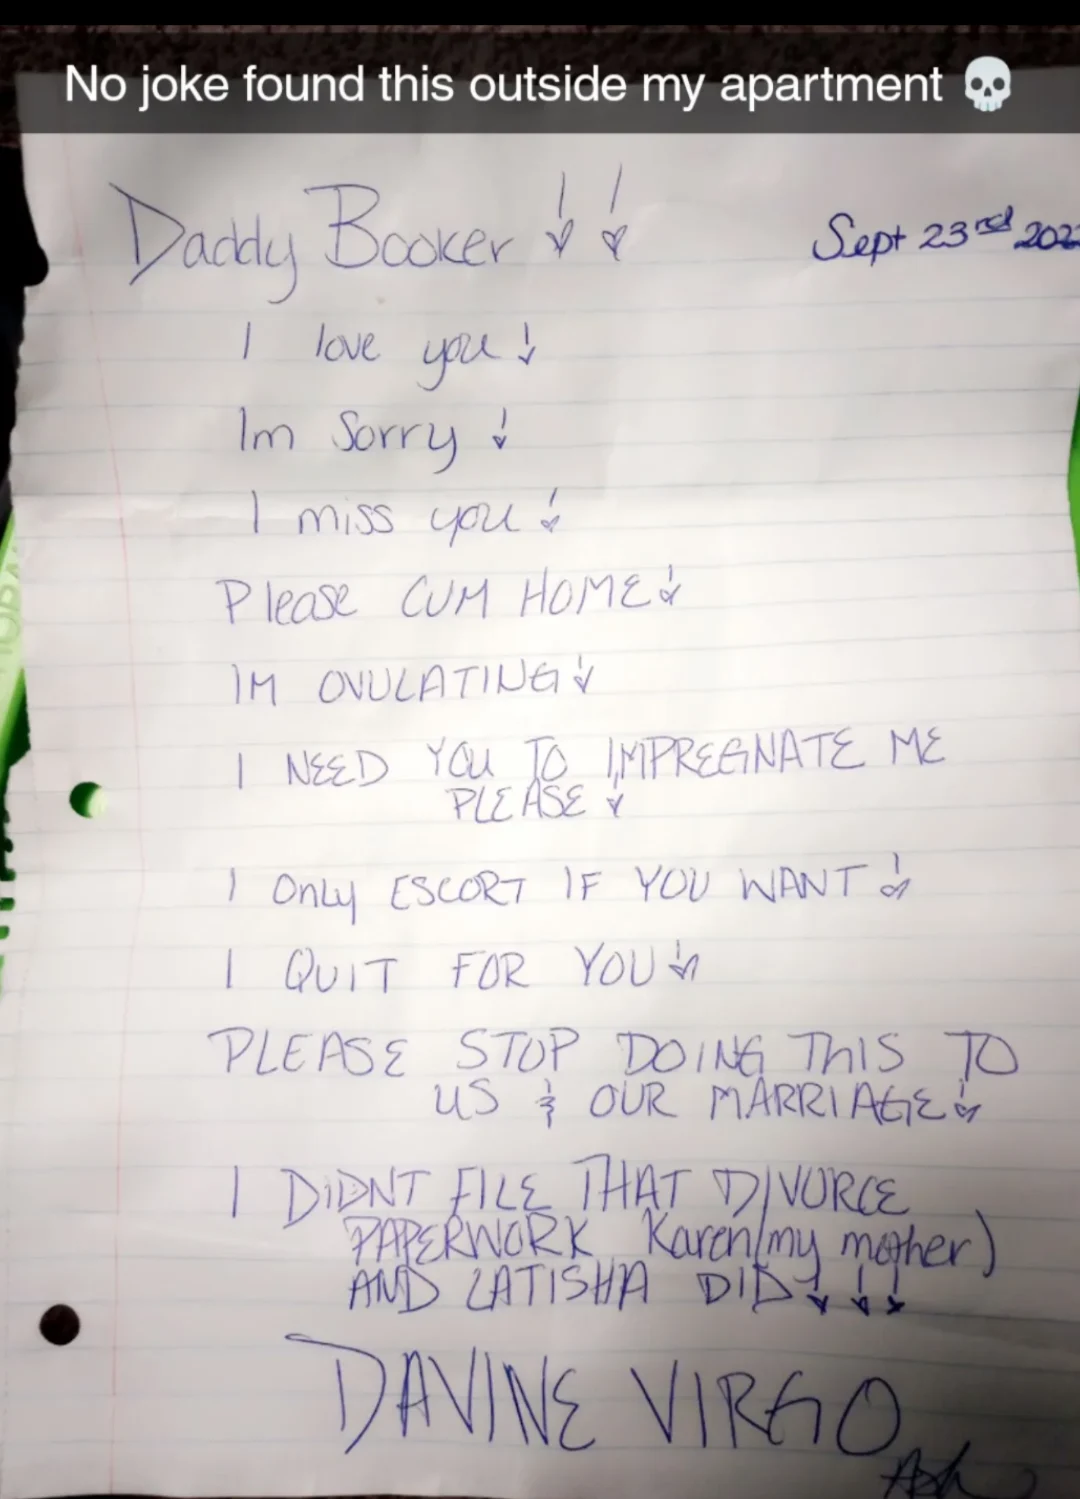 No joke found this outside my apartment 💀
Daddy Booker !!
Sept 23rd 202
I love you!
Im Sorry!
I miss you!
Please CUM HOME!
IM OVULATING!
I NEED YOU TO IMPREGNATE ME
PLEASE!
I Only ESCORT IF YOU WANT!
I QUIT FOR YOU!
PLEASE STOP DOING THIS TO
US & OUR MARRIAGE!
I DIDNT FILE THAT DIVORCE
PAPERWORK Karen(my mother)
AND LATISHA DID!!!
DAVINE VIRGO
Ash